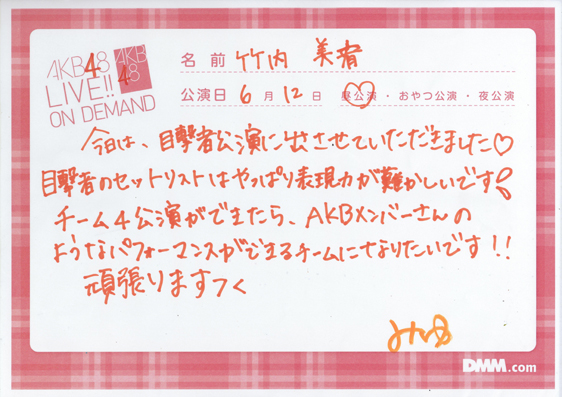 AKB48
LIVE!!
ON DEMAND
AKB
48
名前 竹内 美宥
公演日 6月12日 昼公演・おやつ公演・夜公演
今日は、目撃者公演に出させていただきました♡
目撃者のセットリストはやっぱり表現力が難かしいです
チーム4公演ができたら、AKBメンバーさんの
ようなパフォーマンスができるチームになりたいです!!
頑張りますつく
みゆ
DMM.com